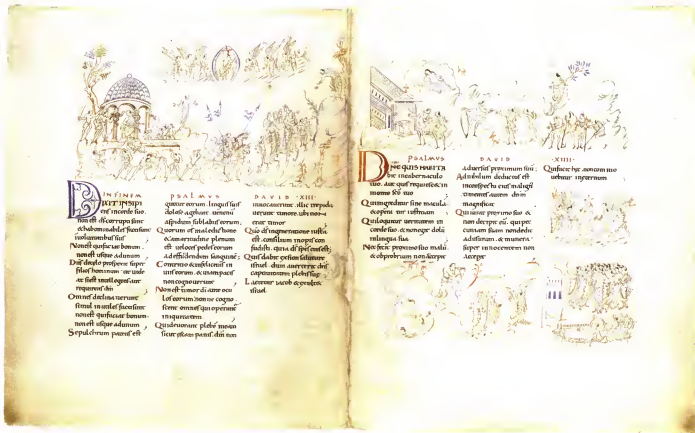 INFINEM
DIXIT INSIPI
ens incorde suo
non est ds corrupti sunt
&abhominabiles facti sunt
involuntatibus suis
Non est qui faciat bonum
non est usque adunum
Dns decelo prospexit super
filios hominum ut uide
at si est intellegens aut
requirens dm
Omnes declinauerunt
simul inutiles facti sunt
non est qui faciat bonum
non est usque adunum
Sepulchrum patens est
PSALMVS
guttur eorum linguis suis
dolose agebant uenenu
aspidum sublabiis eorum
Quorum os maledictione
&amaritudine plenum
est ueloces pedes eorum
ad effundendum sanguine
Contritio &infelicitas in
uiis eorum &uiam pacis
non cognouerunt
Non est timor di ante ocu
los eorum nonne cogno
scent omnes qui operant
iniquitatem
Qui deuorant plebe mea
sicut escam panis dm non
DAVID XIII
inuocauerunt illic trepida
uerunt timore ubi non e
rat timor
Quo ds ingeneratione iusta
est consilium inopis con
fudistis quia ds spes eius est
Quis dabit ex sion salutare
israel dum auerterit dns
captiuitatem plebis sue
Laetetur iacob &exultet
israel
PSALMVS DAVID XIIII
DNE QUIS HABITA
bit intabernaculo
tuo aut quis requiescet in
monte sco tuo
Qui ingreditur sine macula
&opera tur iustitiam
Qui loquitur ueritatem in
corde suo &non egit dolu
inlingua sua
Nec fecit proximo suo malu
&obprobrium non accepit
aduersus proximum suu
Ad nihilum deductus est
inconspectu eius malign
timentes autem dnm
magnificat
Qui iurat proximo suo &
non decepit eu qui pec
cuniam suam non dedit
Ad usuram &munera
super innocentem non
accepit
Qui facit hec non com mo
uebitur inaeternum